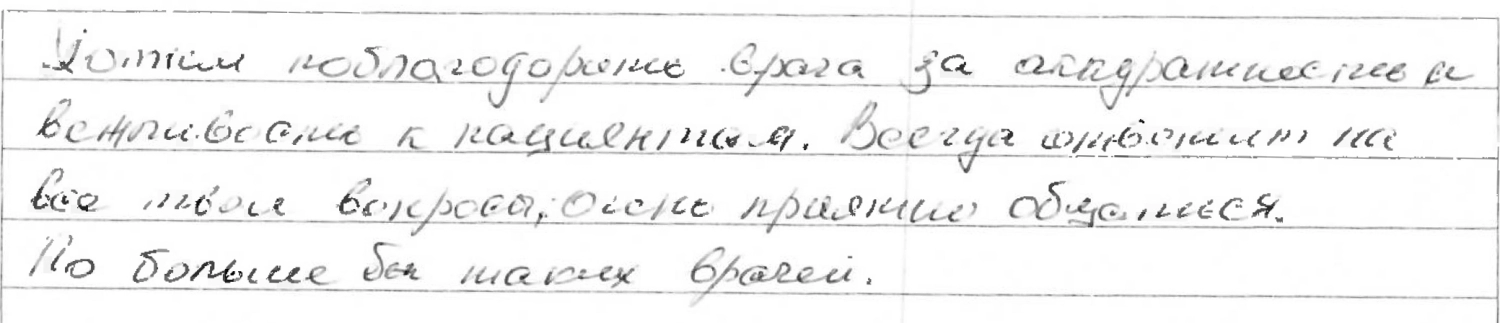 Хотим поблагодорить врача за аккуратность и
вежливость к пациентам. Всегда ответит на
все твои вопросы, очень приятно общаться.
По больше бы таких врачей.